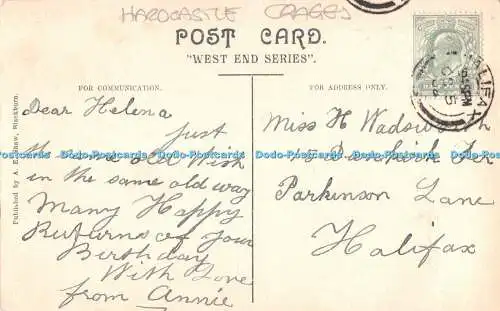 HARDCASTLE CRAGGS
POST CARD.
"WEST END SERIES".
FOR COMMUNICATION.
FOR ADDRESS ONLY.
HALIFAX
5-PM
Dear Helena
just
the same old wish
in the same old way
Many Happy
Returns of your
Birthday
With Love
from Annie
Miss H Wadsworth
Ter
Parkinson Lane
Halifax
Published by A. Winskburn.
Dodo-Postcards Dodo-Postcards Dodo-Postcards Dodo-Postcards Dodo-Postcards Dodo-Postcards Dodo-Postcards